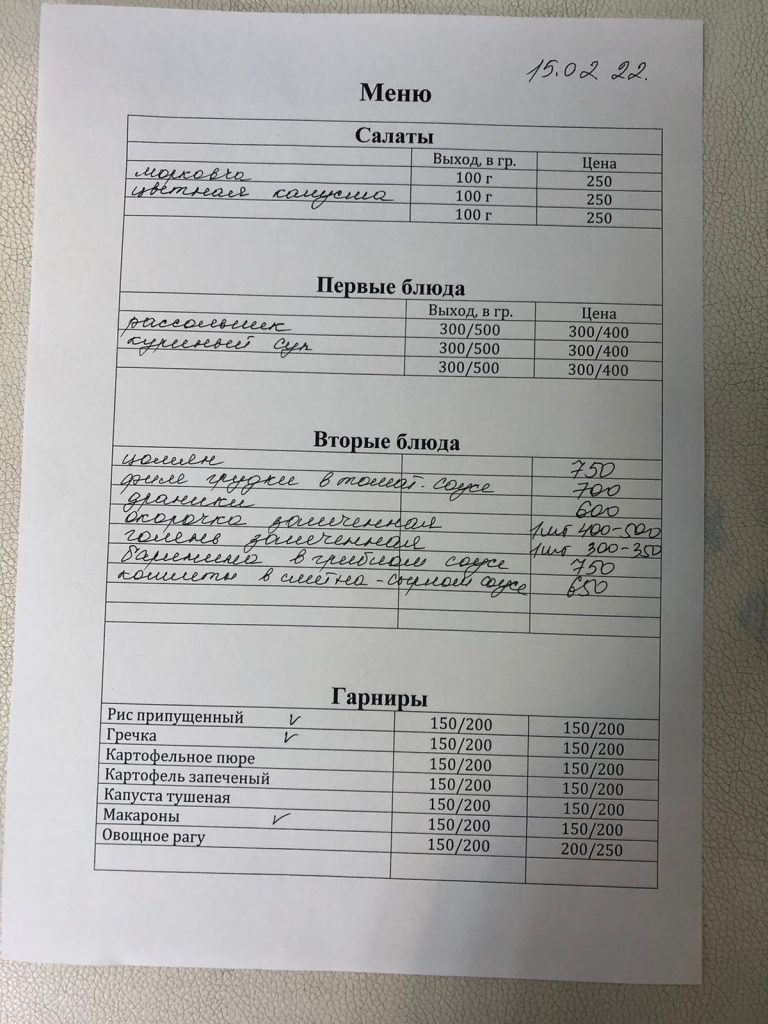 15.02 22.
Меню
Салаты
Выход, в гр. Цена
морковча 100 г 250
цветная капуста 100 г 250
100 г 250
Первые блюда
Выход, в гр. Цена
рассольник 300/500 300/400
куриный суп 300/500 300/400
300/500 300/400
Вторые блюда
цомян 750
филе грудки в томат. соусе 700
драники 600
окорочка запеченная 1шт 400-500
голень запеченная 1шт 300-350
баранина в грибном соусе 750
котлеты в сметна-сырном соусе 650
Гарниры
Рис припущенный ✓ 150/200 150/200
Гречка ✓ 150/200 150/200
Картофельное пюре 150/200 150/200
Картофель запеченый 150/200 150/200
Капуста тушеная 150/200 150/200
Макароны ✓ 150/200 150/200
Овощное рагу 150/200 200/250